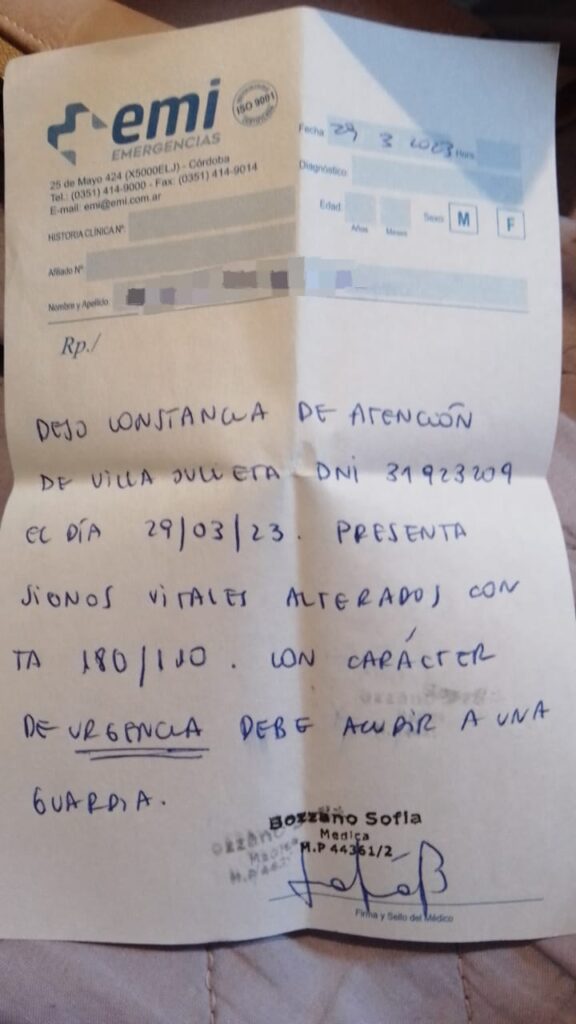 emi
EMERGENCIAS
ISO 9001
25 de Mayo 424 (X5000ELJ) - Córdoba
Tel.: (0351) 414-9000 - Fax: (0351) 414-9014
E-mail: emi@emi.com.ar
Fecha 29 3 2023 Hora
Diagnóstico
Edad Años Meses Sexo M F
HISTORIA CLÍNICA Nº
Afiliado Nº
Nombre y Apellido
Rp./
DEJO CONSTANCIA DE ATENCIÓN
DE VILLA JULIETA DNI 31923209
EL DÍA 29/03/23. PRESENTA
SIGNOS VITALES ALTERADOS CON
TA 180/110. CON CARÁCTER
DE URGENCIA DEBE ACUDIR A UNA
GUARDIA.
Bozzano Sofia
Medica
M.P 44361/2
Firma y Sello del Médico